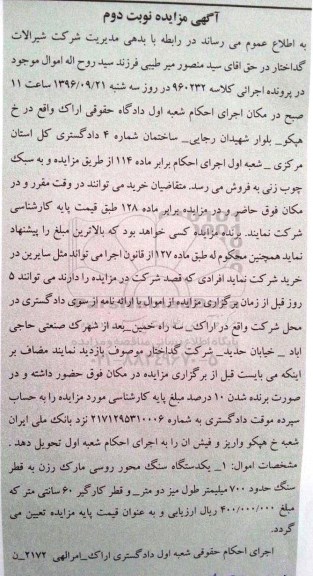 آگهی مزایده نوبت دوم
به اطلاع عموم می رساند در رابطه با بدهی مدیریت شرکت شیرالات
گداختار در حق اقای سید منصور میر طیبی فرزند سید روح اله اموال موجود
در پرونده اجرائی کلاسه ۹۶۰۲۳۲ در روز سه شنبه ۱۳۹۶/۰۹/۲۱ ساعت ۱۱
صبح در مکان اجرای احکام شعبه اول دادگاه حقوقی اراک واقع در خ
هپکو_ بلوار شهیدان رجایی_ ساختمان شماره ۴ دادگستری کل استان
مرکزی _ شعبه اول اجرای احکام برابر ماده ۱۱۴ از طریق مزایده و به سبک
چوب زنی به فروش می رسد. متقاضیان خرید می توانند در وقت مقرر و در
مکان فوق حاضر و در مزایده برابر ماده ۱۲۸ طبق قیمت پایه کارشناسی
شرکت نمایند. برنده مزایده کسی خواهد بود که بالاترین مبلغ را پیشنهاد
نماید همچنین محکوم له طبق ماده ۱۲۷ از قانون اجرا می تواند مثل سایرین در
خرید شرکت نماید افرادی که قصد شرکت در مزایده را دارند می توانند ۵
روز قبل از زمان برگزاری مزایده از اموال با ارائه نامه از سوی دادگستری در
محل شرکت واقع در اراک_ سه راه خمین_بعد از شهرک صنعتی حاجی
اباد _ خیابان حدید_ شرکت گداختار موصوف بازدید نمایند مضاف بر
اینکه می بایست قبل از برگزاری مزایده در مکان فوق حضور داشته و در
صورت برنده شدن ۱۰ درصد مبلغ پایه کارشناسی مورد مزایده را به حساب
سپرده موقت دادگستری به شماره ۲۱۷۱۲۹۵۳۱۰۰۰۶ نزد بانک ملی ایران
شعبه خ هپکو واریز و فیش ان را به اجرای احکام شعبه اول تحویل دهد .
مشخصات اموال: ۱_ یکدستگاه سنگ محور روسی مارک رزن به قطر
سنگ حدود ۷۰۰ میلیمتر طول میز دو متر_ و قطر کارگیر ۶۰ سانتی متر که
مبلغ ۴۰۰/۰۰۰/۰۰۰ ریال ارزیابی و به عنوان قیمت پایه مزایده تعیین می
گردد.
اجرای احکام حقوقی شعبه اول دادگستری اراک_امرالهی ۲۱۷۲_ن